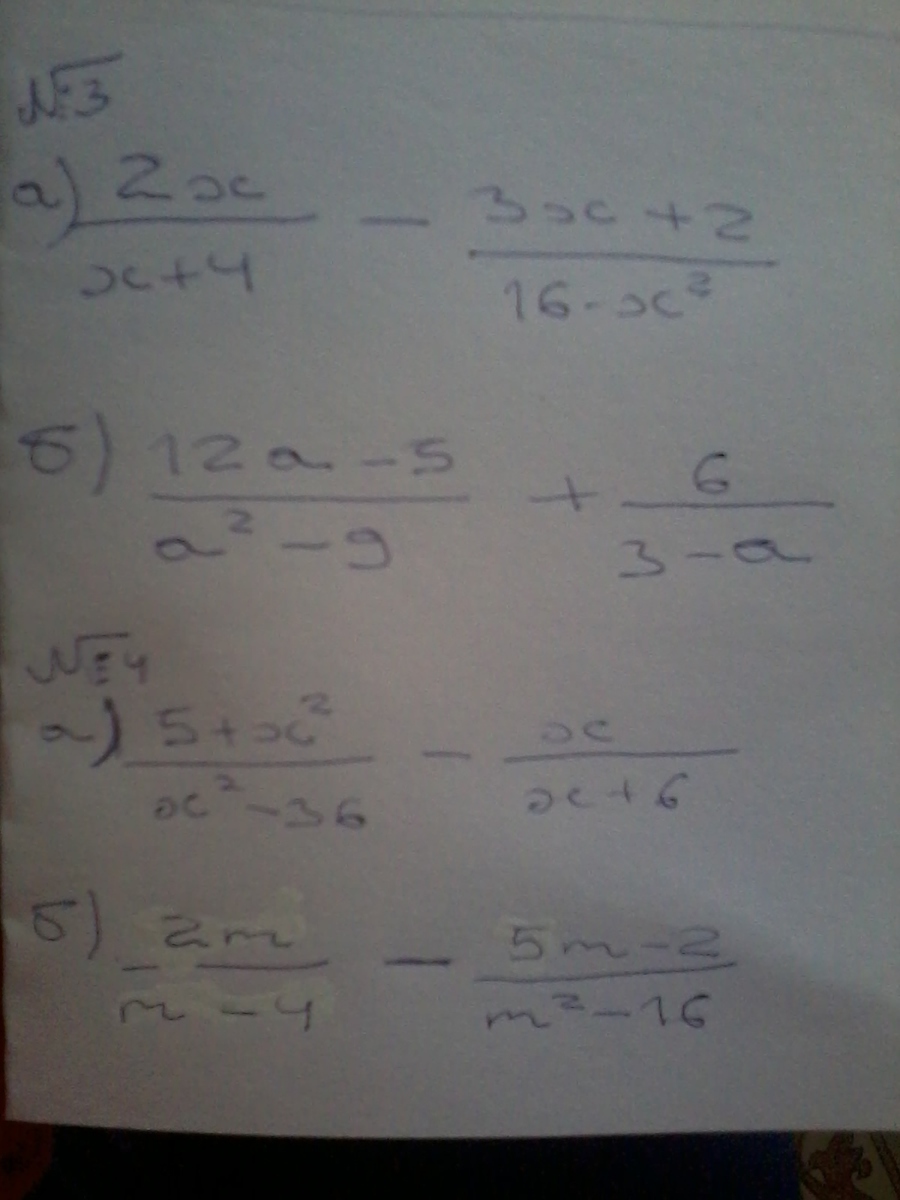 №3
а) 2x/(x+4) − (3x+2)/(16-x²)
б) (12a-5)/(a²-9) + 6/(3-a)
№4
а) (5+x²)/(x²-36) − x/(x+6)
б) 2m/(m-4) − (5m-2)/(m²-16)